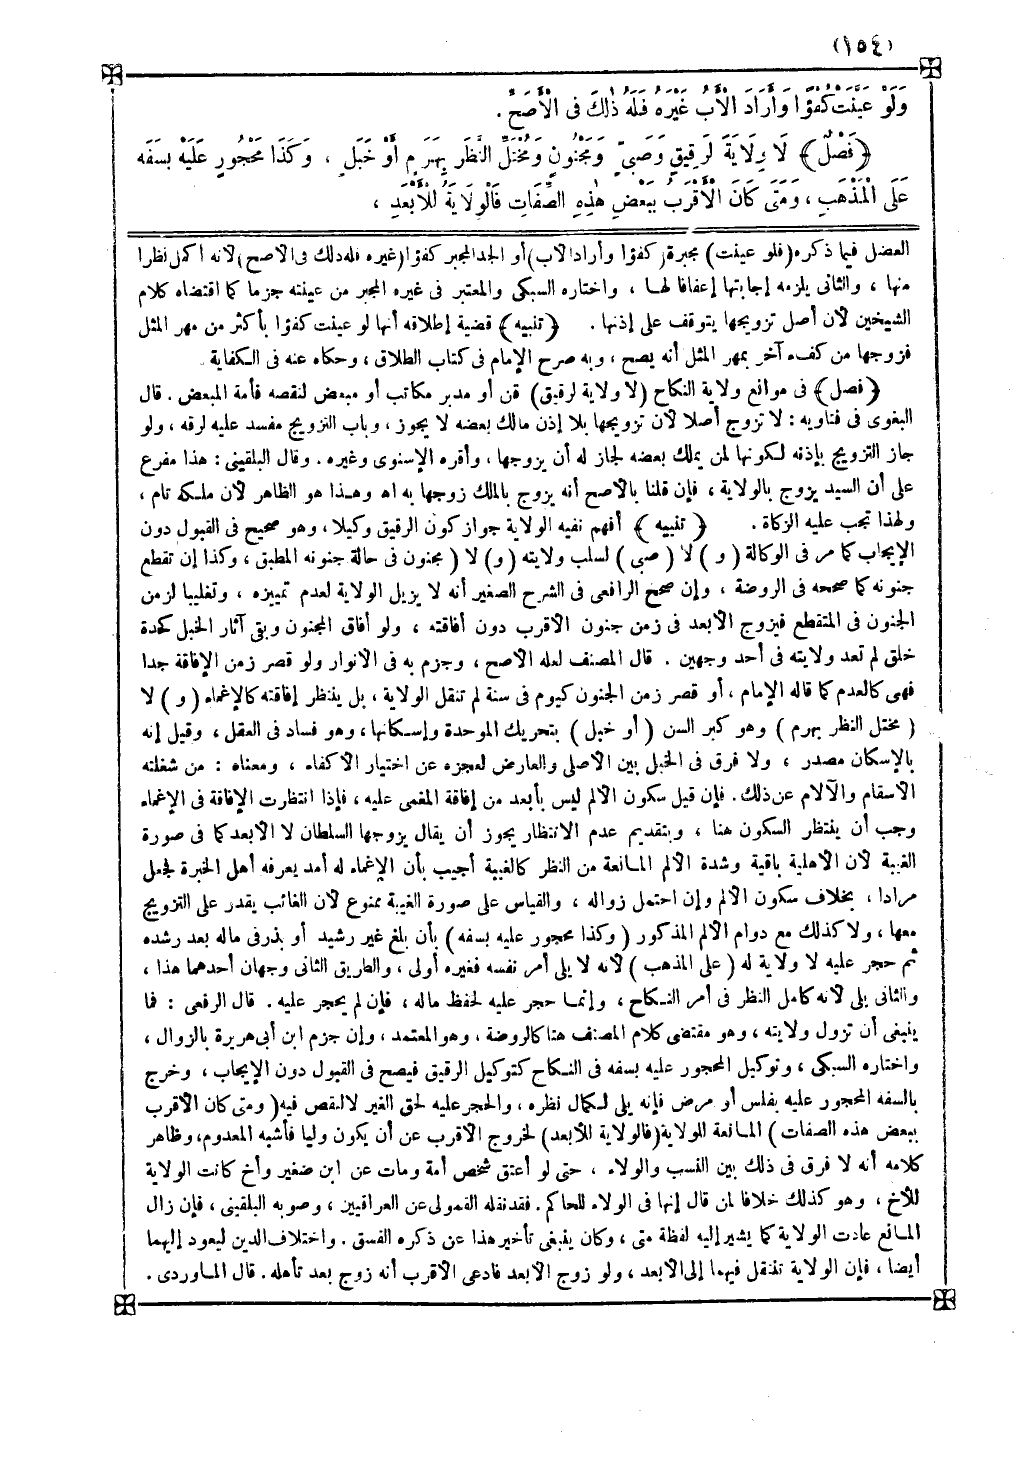 (١٥٤)
وَلَوْ عَيَّنَتْ كُفُؤًا وَأَرَادَ الْأَبُ غَيْرَهُ فَلَهُ ذٰلِكَ فِى الْأَصَحِّ .
﴿ فَصْلٌ ﴾ لَا وِلَايَةَ لِرَقِيقٍ وَصَبِيٍّ وَمَجْنُونٍ وَمُخْتَلِّ النَّظَرِ بِهَرَمٍ أَوْ خَبَلٍ ، وَكَذَا مَحْجُورٌ عَلَيْهِ بِسَفَهٍ
عَلَى الْمَذْهَبِ ، وَمَتَى كَانَ الْأَقْرَبُ بِبَعْضِ هٰذِهِ الصِّفَاتِ فَالْوِلَايَةُ لِلْأَبْعَدِ ،
العضل فيما ذكره (فلو عينت) مجبرة (كفؤا وأراد الاب) أو الجد المجبر كفؤا (غيره فله ذلك فى الاصح) لانه أكمل نظرا
منها ، والثانى يلزمه إجابتها إعفافا لها ، واختاره السبكى والمعتبر فى غيره المجبر من عينته جزما كما اقتضاه كلام
الشيخين لأن أصل تزويجها يتوقف على إذنها . ﴿ تنبيه ﴾ قضية إطلاقه أنها لو عينت كفؤا بأكثر من مهر المثل
فزوجها من كفء آخر بمهر المثل أنه يصح ، وبه صرح الإمام فى كتاب الطلاق ، وحكاه عنه فى الكفاية .
﴿ فصل ﴾ فى موانع ولاية النكاح (لا ولاية لرقيق) قن أو مدبر مكاتب أو مبعض لنقصه فأمة المبعض . قال
البغوى فى فتاويه : لا تزوج أصلا لأن تزويجها بلا إذن مالك بعضه لا يجوز ، وباب التزويج منسد عليه لرقه ، ولو
جاز التزويج بإذنه لكونها لمن يملك بعضه لجاز له أن يزوجها ، وأقره الإسنوى وغيره . وقال البلقينى : هذا مفرع
على أن السيد يزوج بالولاية ، فإن قلنا بالأصح أنه يزوج بالملك زوجها به اه وهذا هو الظاهر لأن ملكه تام ،
ولهذا تجب عليه الزكاة . ﴿ تنبيه ﴾ أفهم نفيه الولاية جواز كون الرقيق وكيلا ، وهو صحيح فى القبول دون
الإيجاب كما مر فى الوكالة ( و ) لا ( صبى ) لسلب ولايته ( و ) لا ( مجنون فى حالة جنونه المطبق ، وكذا إن تقطع
جنونه كما صححه فى الروضة ، وإن صحح الرافعى فى الشرح الصغير أنه لا يزيل الولاية لعدم تمييزه ، وتغليبا لزمن
الجنون فى المتقطع فيزوج الأبعد فى زمن جنون الأقرب دون أفاقته ، ولو أفاق المجنون وبقى آثار الخبل كحدة
خلق لم تعد ولايته فى أحد وجهين . قال المصنف لعله الاصح ، وجزم به فى الانوار ولو قصر زمن الإفاقة جدا
فهى كالعدم كما قاله الإمام ، أو قصر زمن الجنون كيوم فى سنة لم تنقل الولاية ، بل ينتظر إفاقته كالإغماء ( و ) لا
( مختل النظر بهرم ) وهو كبر السن ( أو خبل ) بتحريك الموحدة وإسكانها ، وهو فساد فى العقل ، وقيل إنه
بالإسكان مصدر ، ولا فرق فى الخبل بين الاصلى والعارض لعجزه عن اختيار الاكفاء ، ومعناه : من شغلته
الاسقام والآلام عن ذلك . فإن قيل سكون الالم ليس بأبعد من إفاقة المغمى عليه ، فإذا انتظرت الإفاقة فى الإغماء
وجب أن ينتظر السكون هنا ، وبتقديم عدم الانتظار يجوز أن يقال يزوجها السلطان لا الابعد كما فى صورة
الغيبة لأن الأهلية باقية وشدة الالم المانعة من النظر كالغيبة أجيب بأن الإغماء له أمد يعرفه أهل الخبرة فجعل
مرادا ، بخلاف سكون الألم وإن احتمل زواله ، والقياس على صورة الغيبة ممنوع لأن الغائب يقدر على التزويج
معها ، ولا كذلك مع دوام الألم المذكور ( وكذا محجور عليه بسفه ) بأن بلغ غير رشيد أو بذر فى ماله بعد رشده
ثم حجر عليه لا ولاية له ( على المذهب ) لأنه لا يلى أمر نفسه فغيره أولى ، والطريق الثانى وجهان أحدهما هذا ،
والثانى يلى لأنه كامل النظر فى أمر النكاح ، وإنما حجر عليه لحفظ ماله ، فإن لم يحجر عليه . قال الرفعى : فما
ينبغى أن تزول ولايته ، وهو مقتضى كلام المصنف هنا كالروضة ، وهو المعتمد ، وإن جزم ابن أبى هريرة بالزوال ،
واختاره السبكى ، وتوكيل المحجور عليه بسفه فى النكاح كتوكيل الرقيق فيصح فى القبول دون الإيجاب ، وخرج
بالسفه المحجور عليه بفلس أو مرض فإنه يلى لكمال نظره ، والحجر عليه لحق الغير لا لنقص فيه ( ومتى كان الأقرب
ببعض هذه الصفات ) المانعة للولاية (فالولاية للأبعد) لخروج الأقرب عن أن يكون وليا فأشبه المعدوم ، وظاهر
كلامه أنه لا فرق فى ذلك بين النسب والولاء ، حتى لو أعتق شخص أمة ومات عن ابن صغير وأخ كانت الولاية
للأخ ، وهو كذلك خلافا لمن قال إنها فى الولاء للحاكم . فقد نقله القمولى عن العراقيين ، وصوبه البلقينى ، فإن زال
المانع عادت الولاية كما يشير إليه لفظة متى ، وكان ينبغى تأخير هذا عن ذكره الفسق . واختلاف الدين ليعود إليهما
أيضا ، فإن الولاية تنتقل فيهما إلى الأبعد ، ولو زوج الابعد فادعى الأقرب أنه زوج بعد تأهله . قال الماوردى .